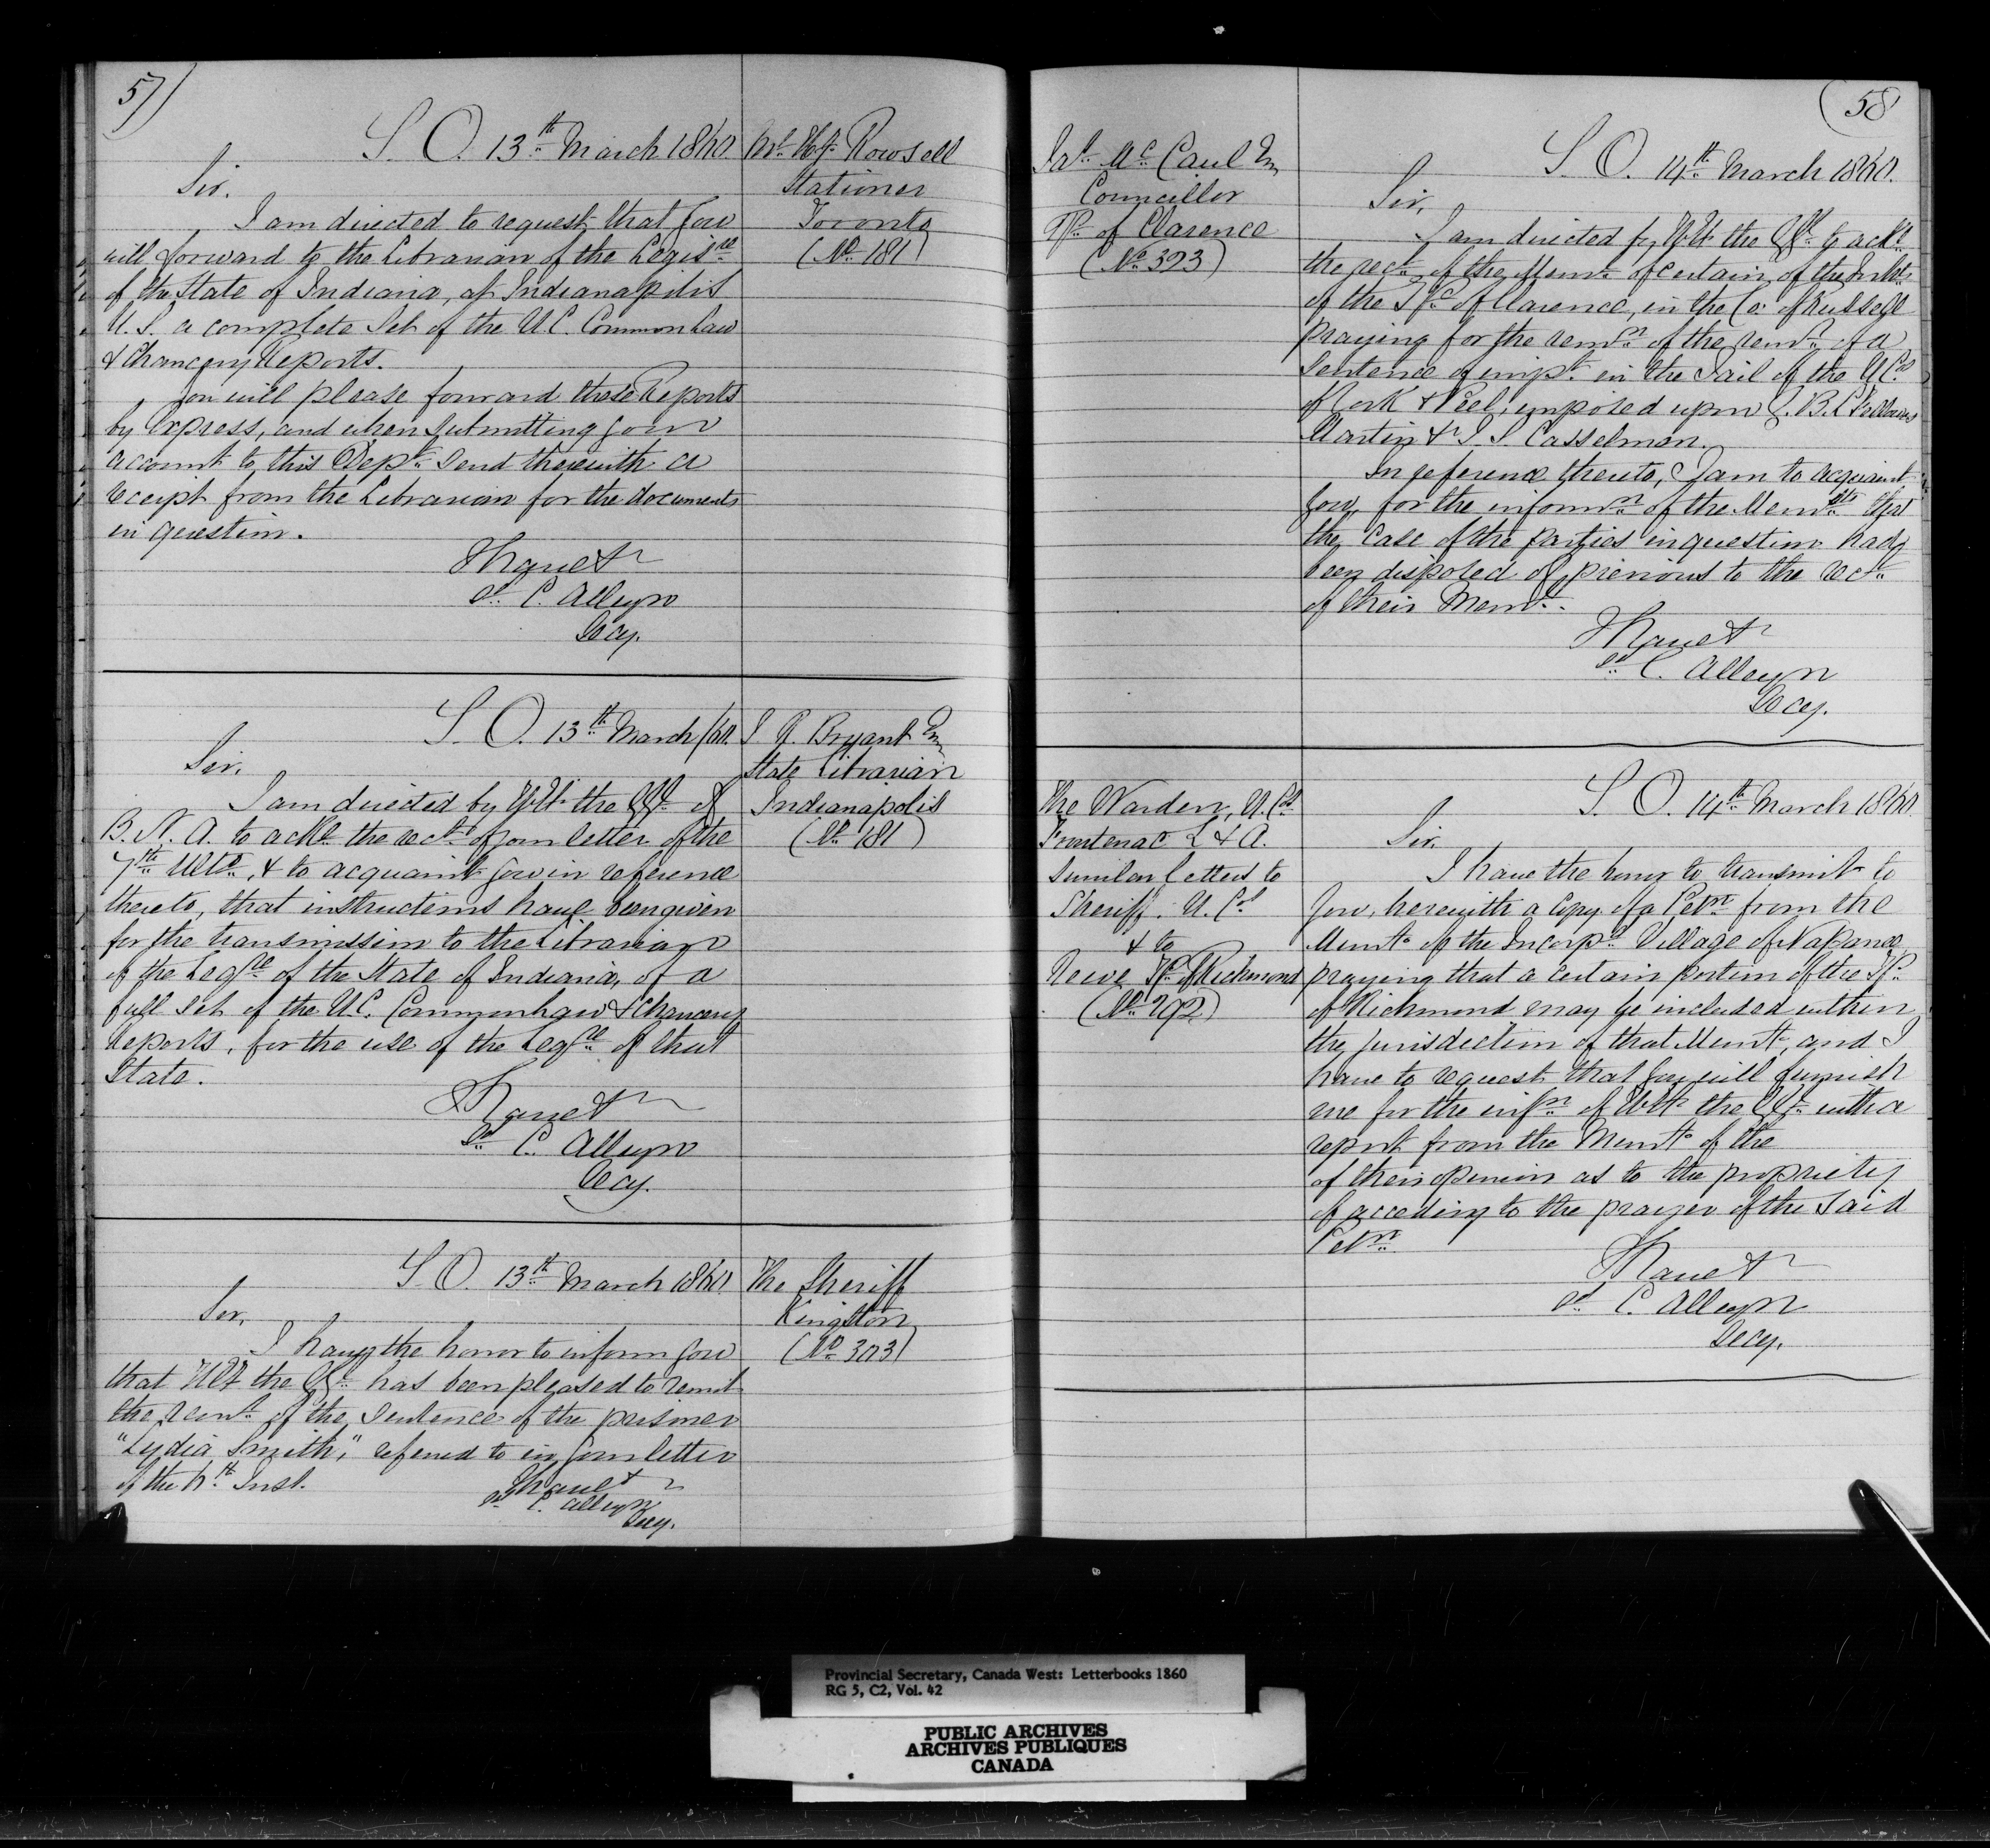 57)
S. O. 13th March 1860.
Sir.
I am directed to request that you
will forward to the Librarian of the Legisre
of the State of Indiana, at Indianapolis
U. S. a complete Set of the U.C. Common Law
& Chancery Reports.
You will please forward these Reports
by Express, and when submitting your
account to this Dept. send therewith a
receipt from the Librarian for the documents
in question.
I have &
sd C. Alleyn
Secy.
Mr. Hy. Rowsell
Stationer
Toronto
(No. 181)
S. O. 13th March /60.
Sir.
I am directed by H.E. the G.G. of
B. N. A. to ackle the rect of your letter of the
7th Ulto., & to acquaint you in reference
thereto, that instructions have been given
for the transmission to the Librarian
of the Legre of the State of Indiana, of a
full set of the U.C. Common Law & Chancery
Reports, for the use of the Legre of that
State.
I have &
sd C. Alleyn
Secy.
Bryant
State Librarian
Indianapolis
(No. 181)
S. O. 13th March 1860.
Sir,
I have the honor to inform you
that H.E. the G.G. has been pleased to remit
the remr. of the sentence of the prisoner
"Lydia Smith," referred to in your letter
of the Inst.
I have &
sd C. Alleyn
Secy.
The Sheriff
Kingston
(No. 303)
(58
Mc Caul
Councillor
Tp. of Clarence
(No. 393)
S. O. 14th March 1860.
Sir,
I am directed by H.E. the G.G. to ackle
the rect. of the Meml. of certain of the Inhts
of the Tp. of Clarence, in the Co. of Russell
praying for the remn of the remr. of a
Sentence of impt. in the Jail of the U.Cos
of York & Peel, imposed upon G. B. L. Fellowes
Martin & I. S. Casselman.
In reference thereto, I am to acquaint
you, for the informn of the Memsts that
the case of the parties in question had
been disposed of, previous to the rect.
of their Meml.
I have &
sd C. Alleyn
Secy.
The Warden, U. Cos
Frontenac L & A.
Similar letters to
Sheriff. U. Cos
& to
Reeve Tp. of Richmond
(No. 292)
S. O. 14th March 1860
Sir,
I have the honor to transmit to
you, herewith a copy of a Petn from the
Munty. of the Incorpd. Village of Napanee,
praying that a certain portion of the Tp.
of Richmond may be included within
the jurisdiction of that Munty, and I
have to request that you will furnish
me for the infn of H.E. the G.G. with a
report from the Munty of the
of their opinion as to the propriety
of acceding to the prayer of the said
Petn
I have &
sd C. Alleyn
Secy.
Provincial Secretary, Canada West: Letterbooks 1860
RG 5, C2, Vol. 42
PUBLIC ARCHIVES
ARCHIVES PUBLIQUES
CANADA